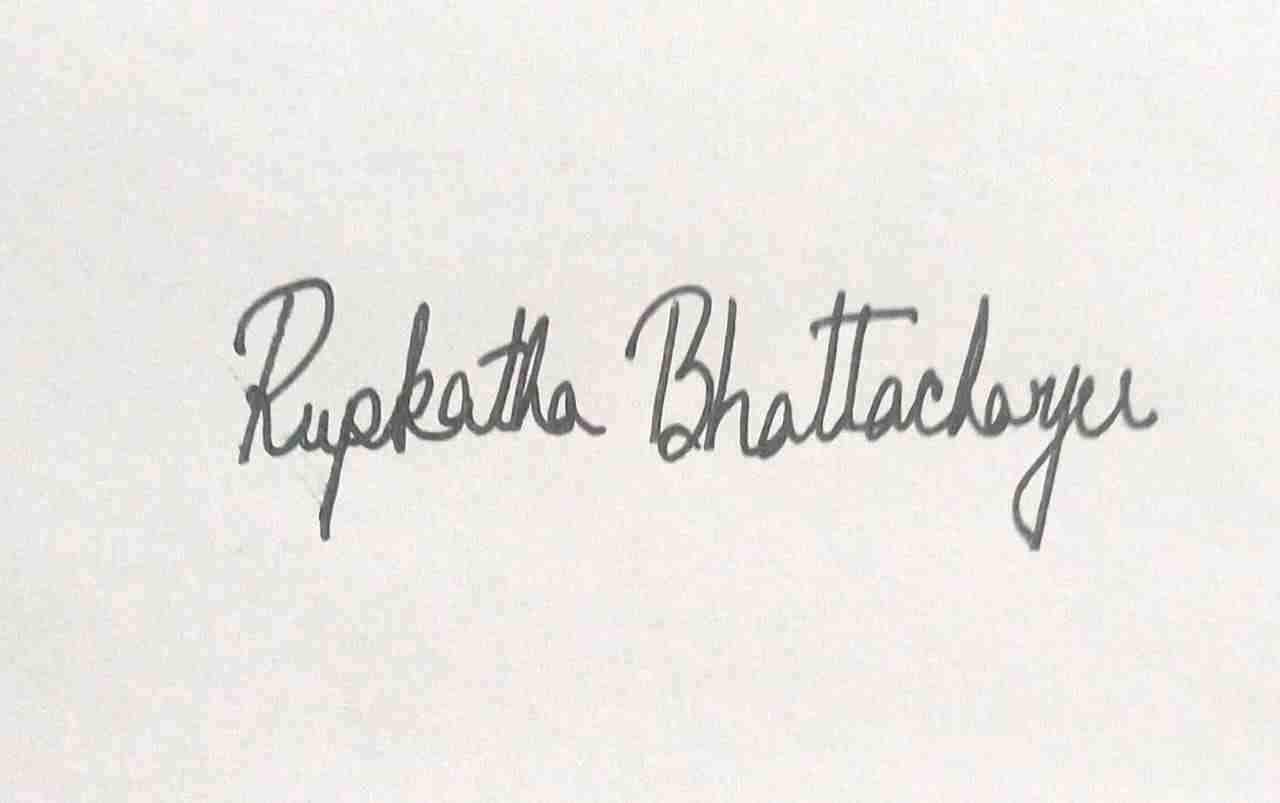 Rupkatha Bhattacharjee